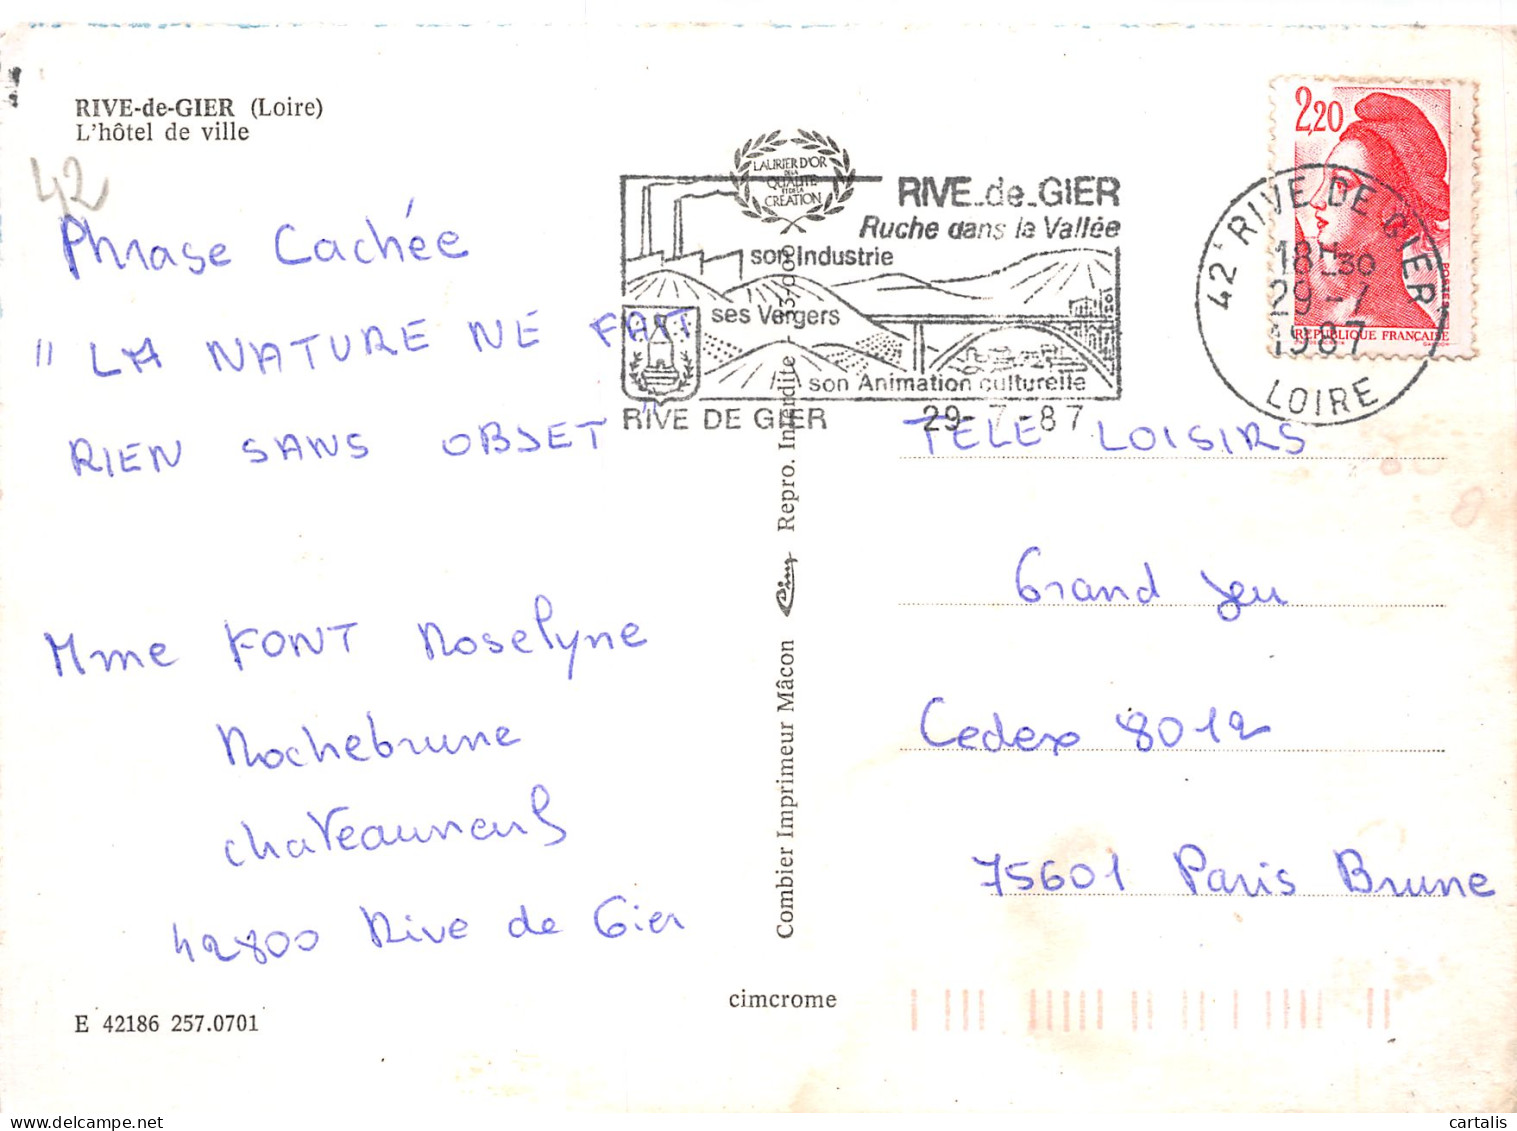 RIVE-de-GIER (Loire)
L'hôtel de ville
42
Phrase Cachée
" LA NATURE NE FAIT
RIEN SANS OBJET "
Mme FONT Roselyne
Rochebrune
chateauneuf
42800 Rive de Gier
E 42186 257.0701
cimcrome
Combier Imprimeur Mâcon Cim Repro. Interdite - 3-000
LAURIER D'OR
DE LA
QUALITÉ
ET DE LA
CRÉATION
RIVE-de-GIER
Ruche dans la Vallée
son Industrie
ses Vergers
son Animation culturelle
RIVE DE GIER
29-7-87
2,20
POSTES
REPUBLIQUE FRANÇAISE
42 RIVE DE GIER
18H30
29-7
1987
LOIRE
TELE LOISIRS
Grand Jeu
Cedex 8012
75601 Paris Brune
Delcampe.net
cartalis